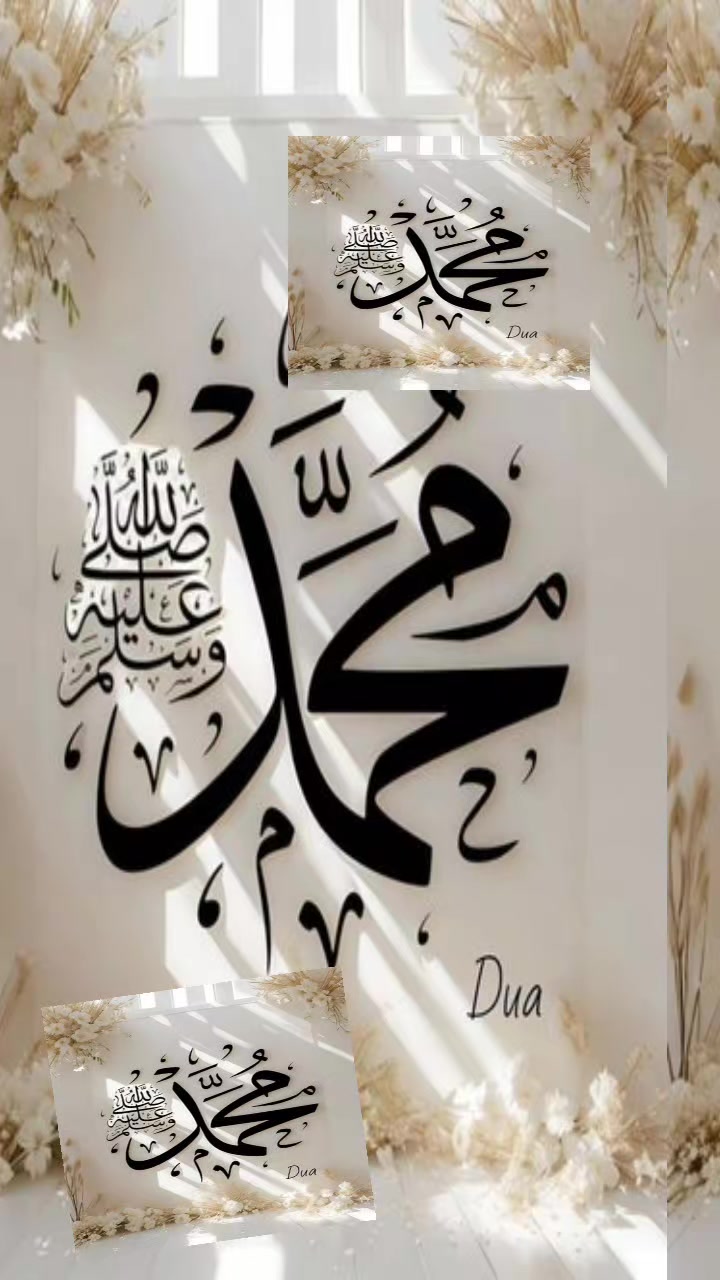 محمد
صلى الله
عليه
وسلم
Dua
محمد
صلى الله
عليه
وسلم
Dua
محمد
صلى الله
عليه
وسلم
Dua